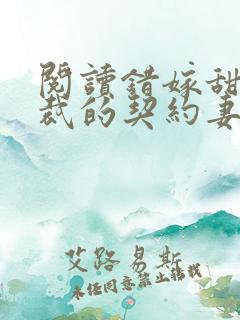 閱讀錯嫁甜
裁的契約妻
艾路易斯
未經同意禁止轉載